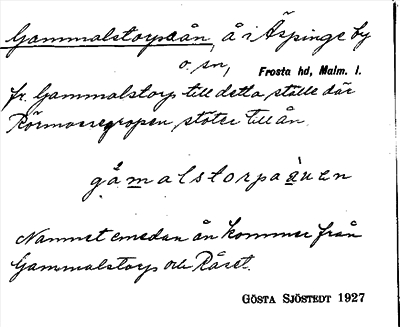 Gammalstorpaån, å i Äspinge by
o. sn,
Frosta hd, Malm. l.
fr. Gammalstorp till detta ställe där
Rörmossegropen stöter till ån.
gåmalstorpaåuen
Namnet emedan ån kommer från
Gammalstorp och Råset.
GÖSTA SJÖSTEDT 1927